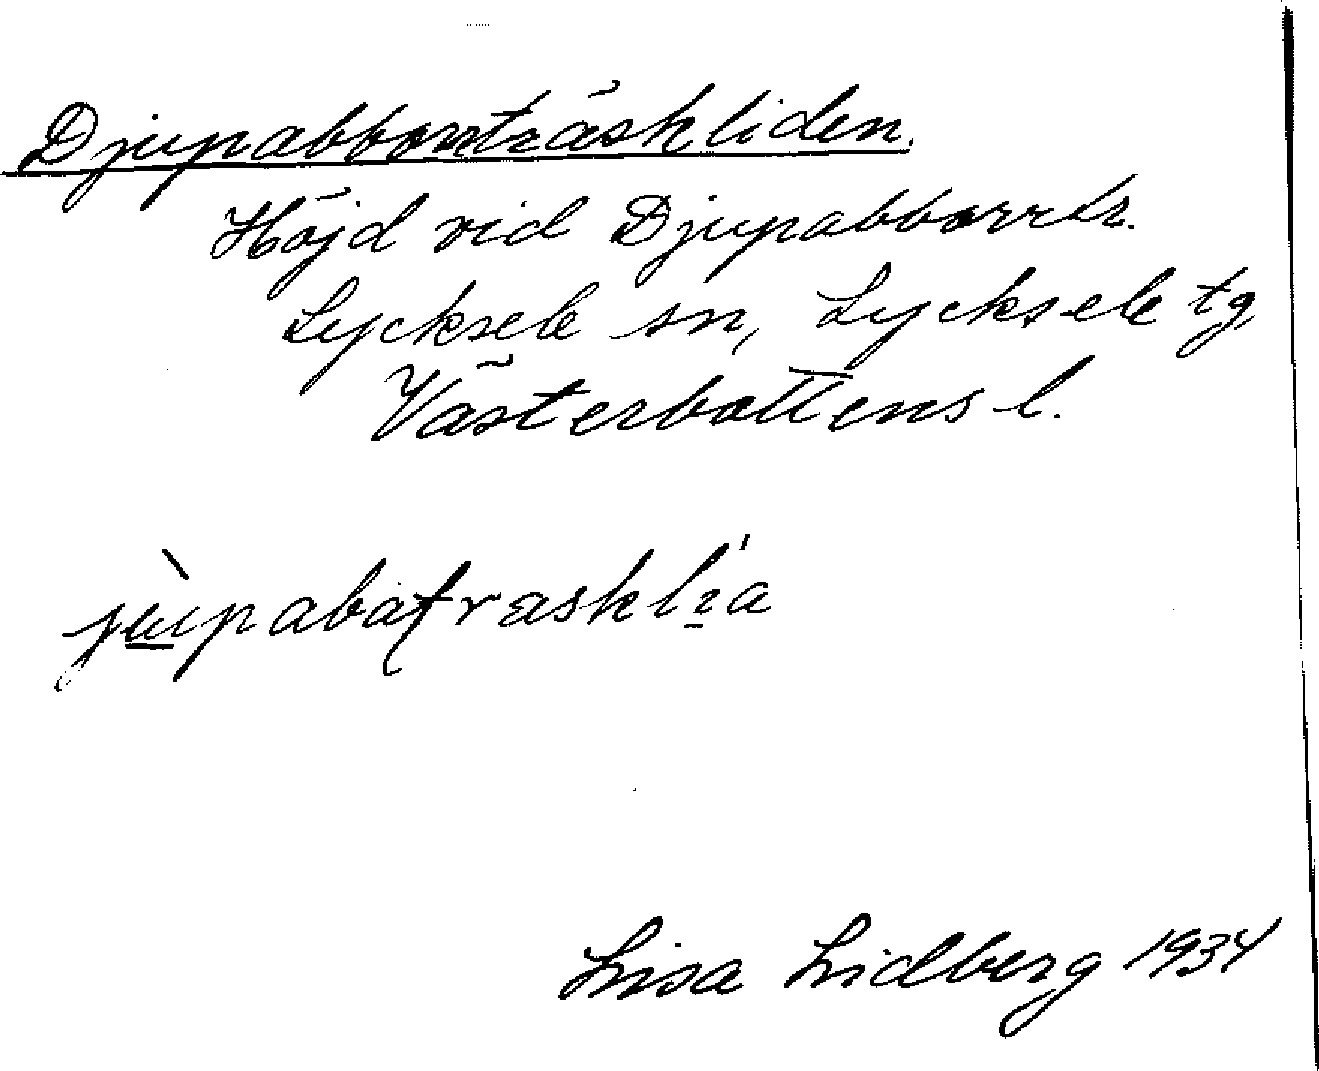 Djupabborrträskliden.
Höjd vid Djupabborrtr.
Lycksele sn, Lycksele tg,
Västerbottens l.
Lisa Lidberg 1934